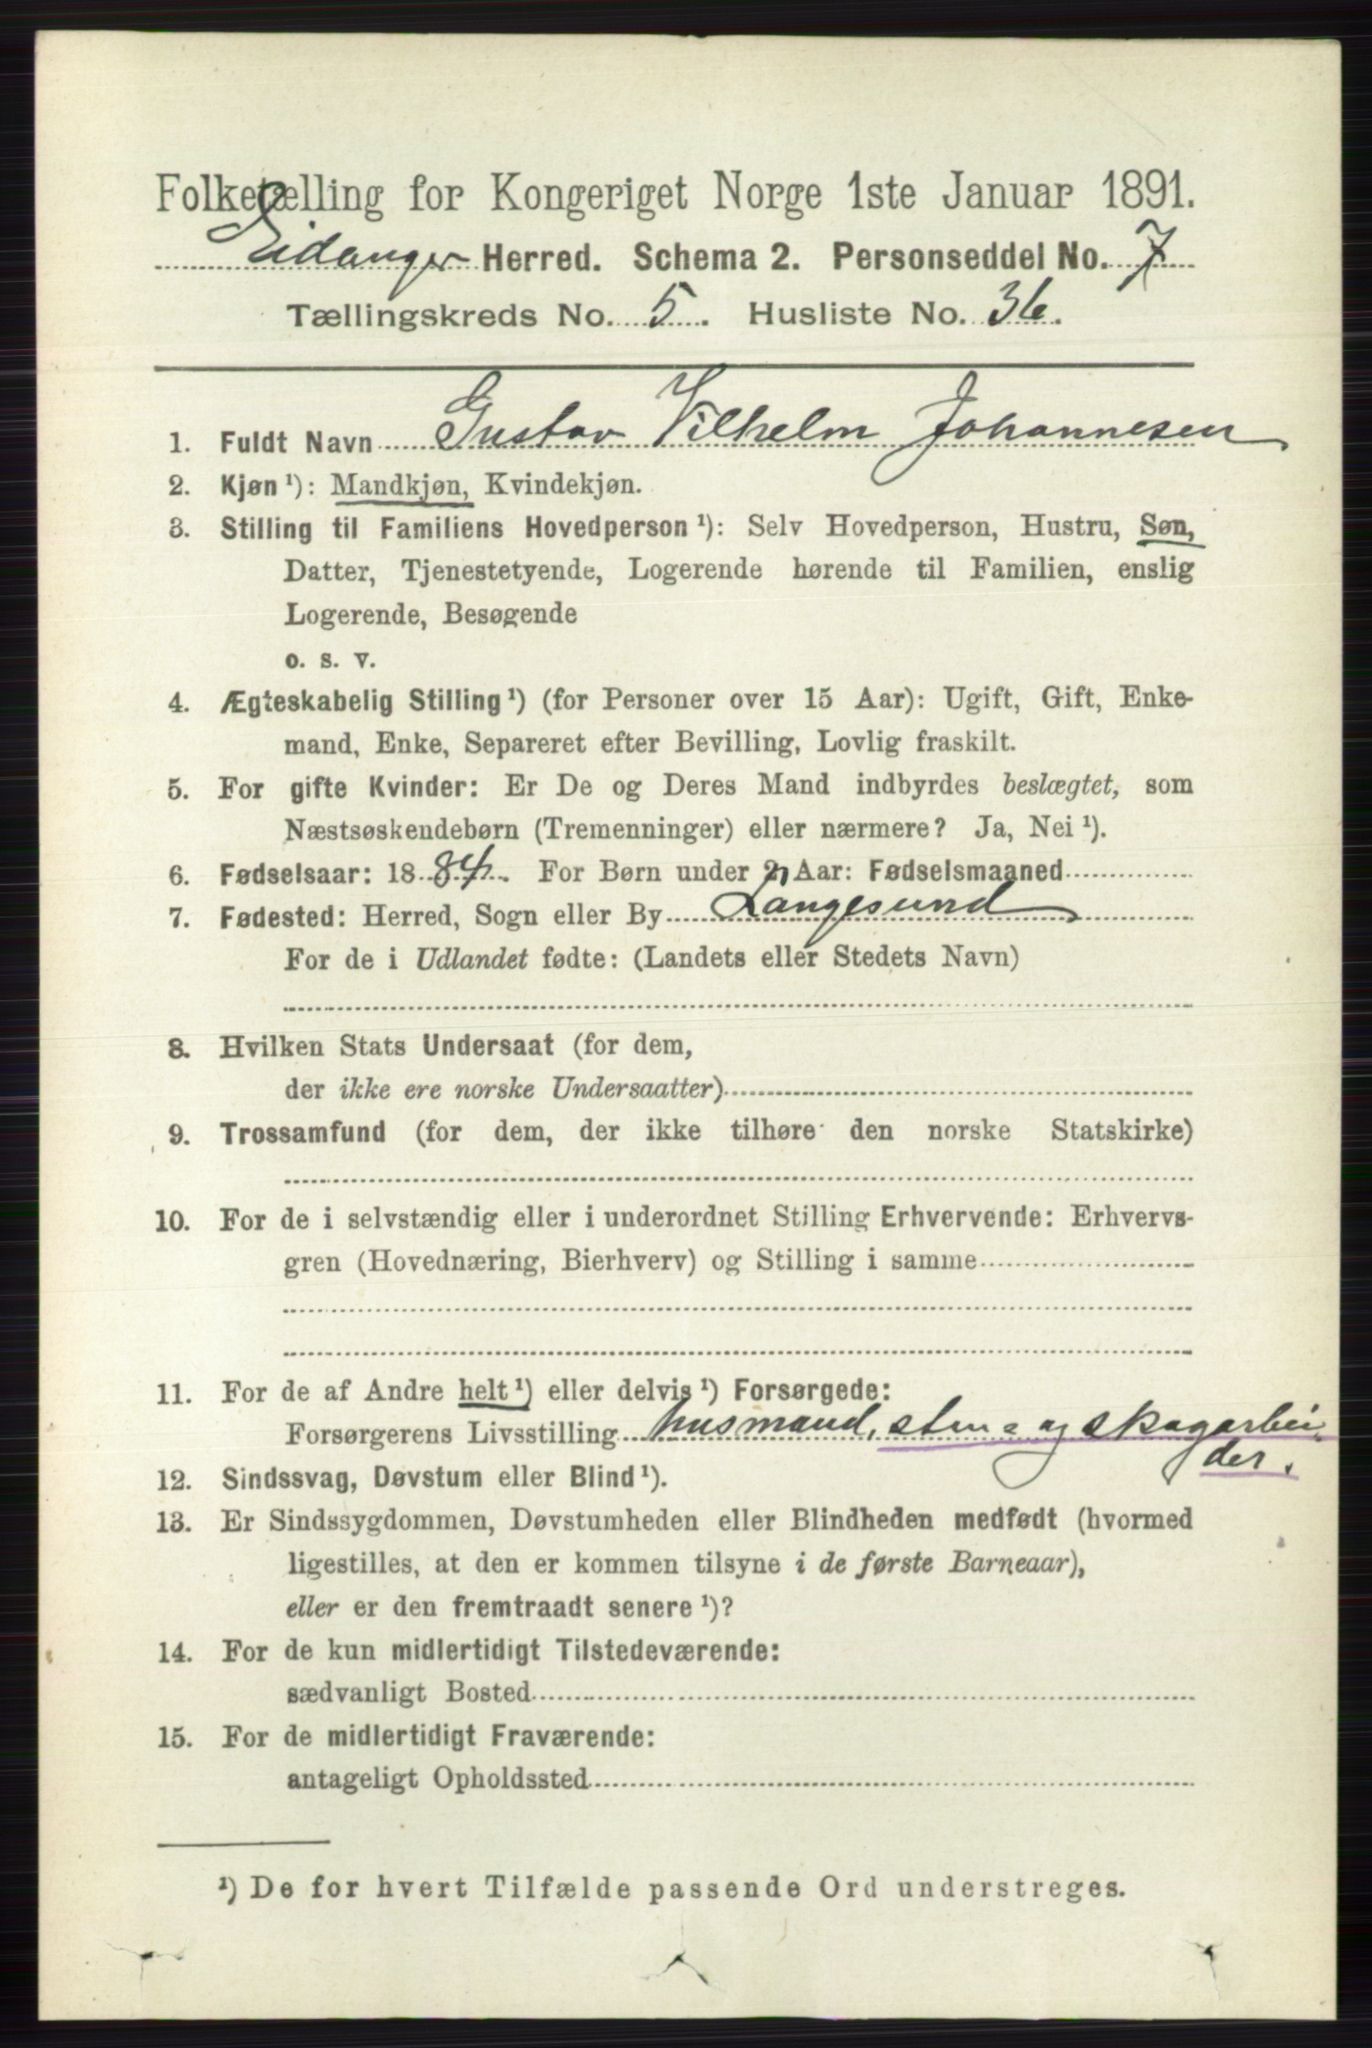 Folketælling for Kongeriget Norge 1ste Januar 1891.
Eidanger Herred. Schema 2. Personseddel No. 7
Tællingskreds No. 5. Husliste No. 36.
1. Fuldt Navn Gustav Vilhelm Johannesen
2. Kjøn ¹): Mandkjøn, Kvindekjøn.
3. Stilling til Familiens Hovedperson ¹): Selv Hovedperson, Hustru, Søn,
Datter, Tjenestetyende, Logerende hørende til Familien, enslig
Logerende, Besøgende
o. s. v.
4. Ægteskabelig Stilling ¹) (for Personer over 15 Aar): Ugift, Gift, Enke-
mand, Enke, Separeret efter Bevilling, Lovlig fraskilt.
5. For gifte Kvinder: Er De og Deres Mand indbyrdes beslægtet, som
Næstsøskendebørn (Tremenninger) eller nærmere? Ja, Nei ¹).
6. Fødselsaar: 1884. For Børn under 2 Aar: Fødselsmaaned
7. Fødested: Herred, Sogn eller By Langesund
For de i Udlandet fødte: (Landets eller Stedets Navn)
8. Hvilken Stats Undersaat (for dem,
der ikke ere norske Undersaatter)
9. Trossamfund (for dem, der ikke tilhøre den norske Statskirke)
10. For de i selvstændig eller i underordnet Stilling Erhvervende: Erhvervs-
gren (Hovednæring, Bierhverv) og Stilling i samme
11. For de af Andre helt ¹) eller delvis ¹) Forsørgede:
Forsørgerens Livsstilling husmand, sten= og skogarbei-
der.
12. Sindssvag, Døvstum eller Blind ¹).
13. Er Sindssygdommen, Døvstumheden eller Blindheden medfødt (hvormed
ligestilles, at den er kommen tilsyne i de første Barneaar),
eller er den fremtraadt senere ¹)?
14. For de kun midlertidigt Tilstedeværende:
sædvanligt Bosted
15. For de midlertidigt Fraværende:
antageligt Opholdssted
¹) De for hvert Tilfælde passende Ord understreges.